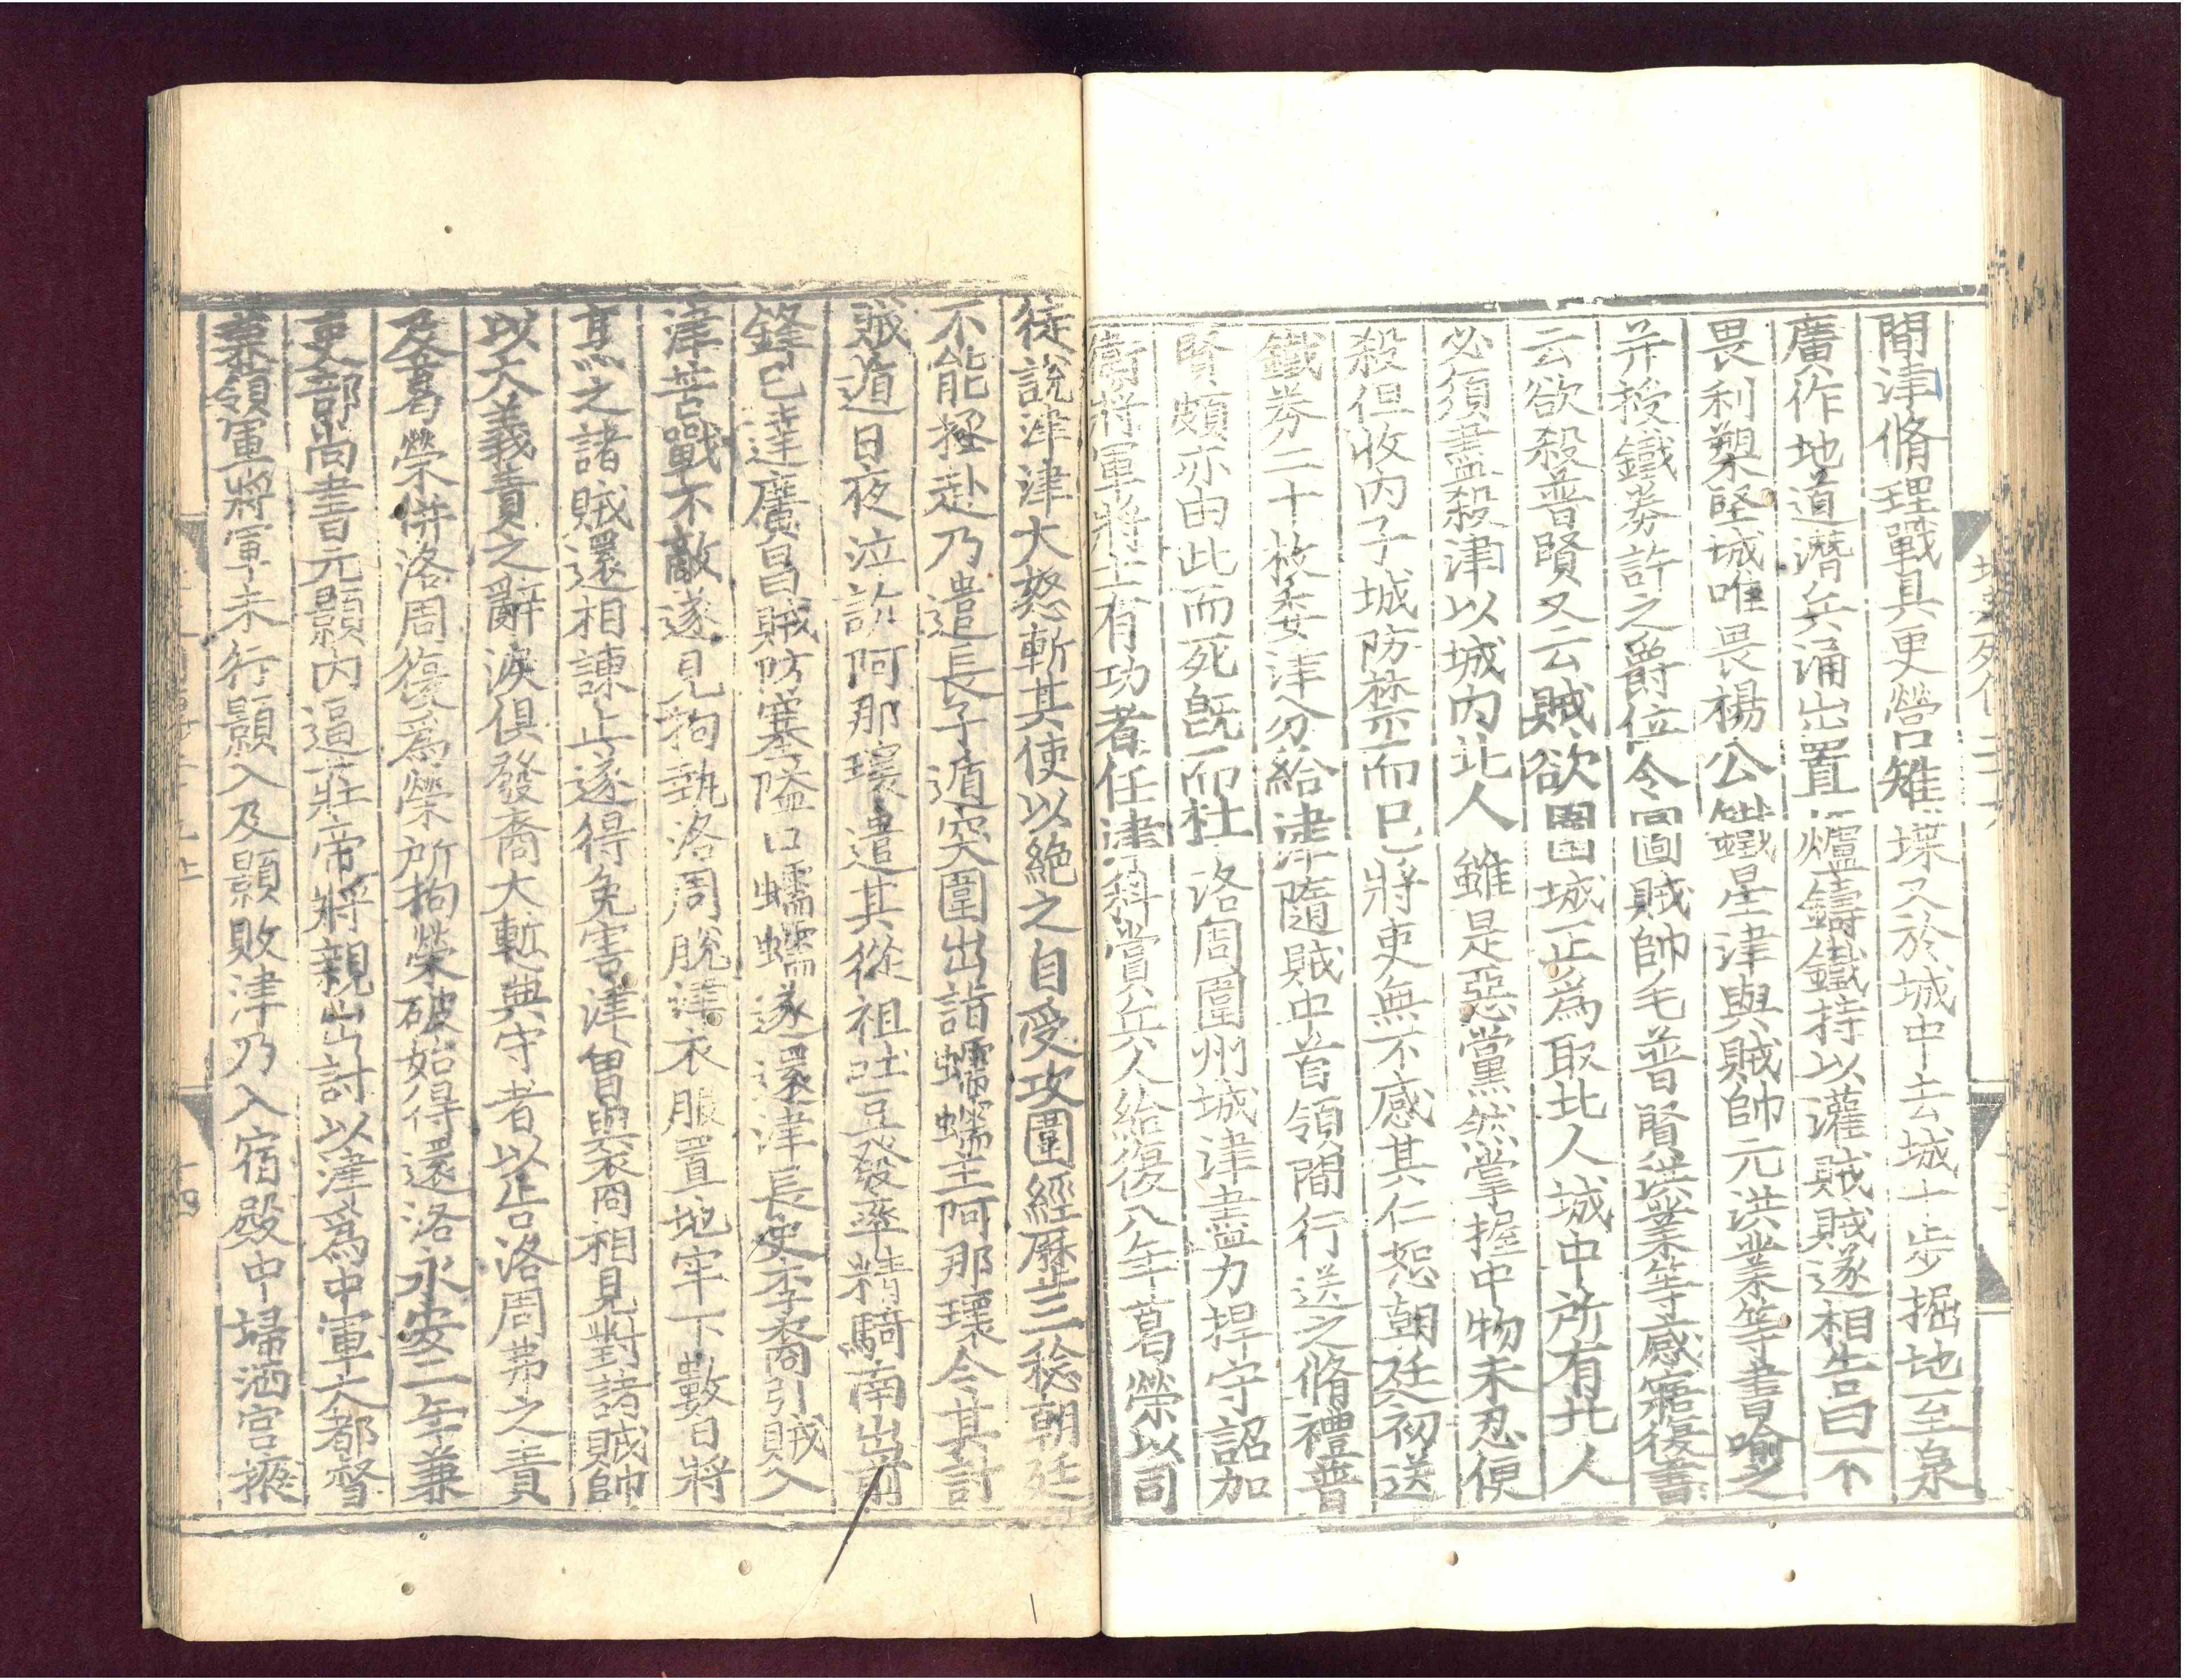 間津脩理戰具更營雉堞又於城中去城十步掘地至泉
廣作地道潛兵涌出置爐鑄鐵持以灌賊賊遂相告曰不
畏利槊堅城唯畏楊公鐵星津與賊帥元洪業等書喻之
并授鐵券許之爵位令圖賊帥毛普賢洪業等感寤復書
云欲殺普賢又云賊欲圍城正為取北人城中所有北人
必須盡殺津以城內北人雖是惡黨然掌握中物未忍便
殺但收內子城防禁而已將吏無不感其仁恕朝廷初送
鐵券二十枚委津分給津隨賊中首領間行送之脩禮普
賢頗亦由此而死旣而杜洛周圍州城津盡力捍守詔加
衞將軍將士有功者任津科賞兵人給復八年葛榮以司
徒說津津大怒斬其使以絶之自受攻圍經歷三稔朝廷
不能拯赴乃遣長子遁突圍出詣蠕蠕主阿那瓌令其討
賊遁日夜泣訴阿那瓌遣其從祖吐豆發率精騎南出前
鋒已達廣昌賊防塞隘口蠕蠕遂還津長史李裔引賊入
津苦戰不敵遂見拘執洛周脫津衣服置地牢下數日將
烹之諸賊還相諫止遂得免害津曽與裔相見對諸賊帥
以大義責之辭淚俱發裔大慙典守者以告洛周弗之責
及葛榮併洛周復為榮所拘榮破始得還洛永安二年兼
吏部尚書元顥內逼莊帝將親出討以津為中軍大都督
兼領軍將軍未行顥入及顥敗津乃入宿殿中埽洒宮掖